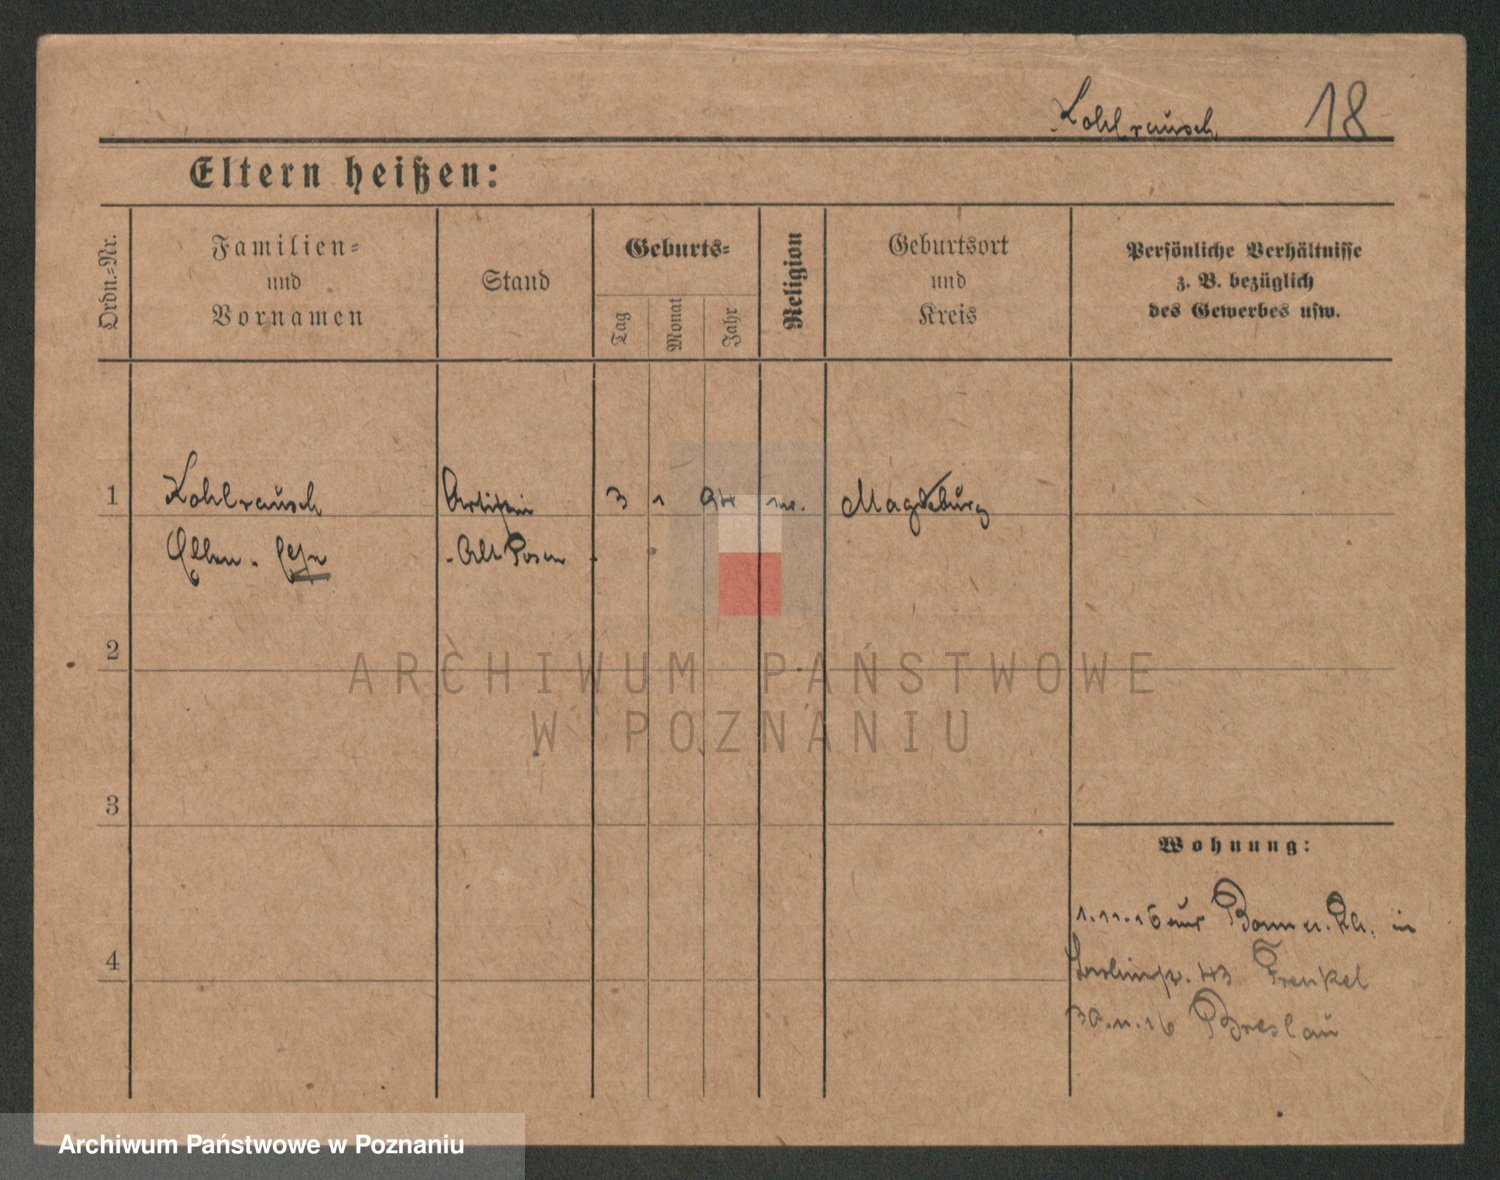 Kohlrausch 18
Eltern heißen:
Ordn.=Nr.
Familien=
und
Vornamen
Stand
Geburts=
Tag
Monat
Jahr
Religion
Geburtsort
und
Kreis
Persönliche Verhältnisse
z. B. bezüglich
des Gewerbes usw.
1 Kohlrausch Artistin 3 1 Magdeburg
Ellen Alt Posen
2
ARCHIWUM PAŃSTWOWE
W POZNANIU
3
Wohnung:
1.11.16 aus Bonn a. Rh. in
4
43 Frenkel
30.11.16 Breslau
Archiwum Państwowe w Poznaniu